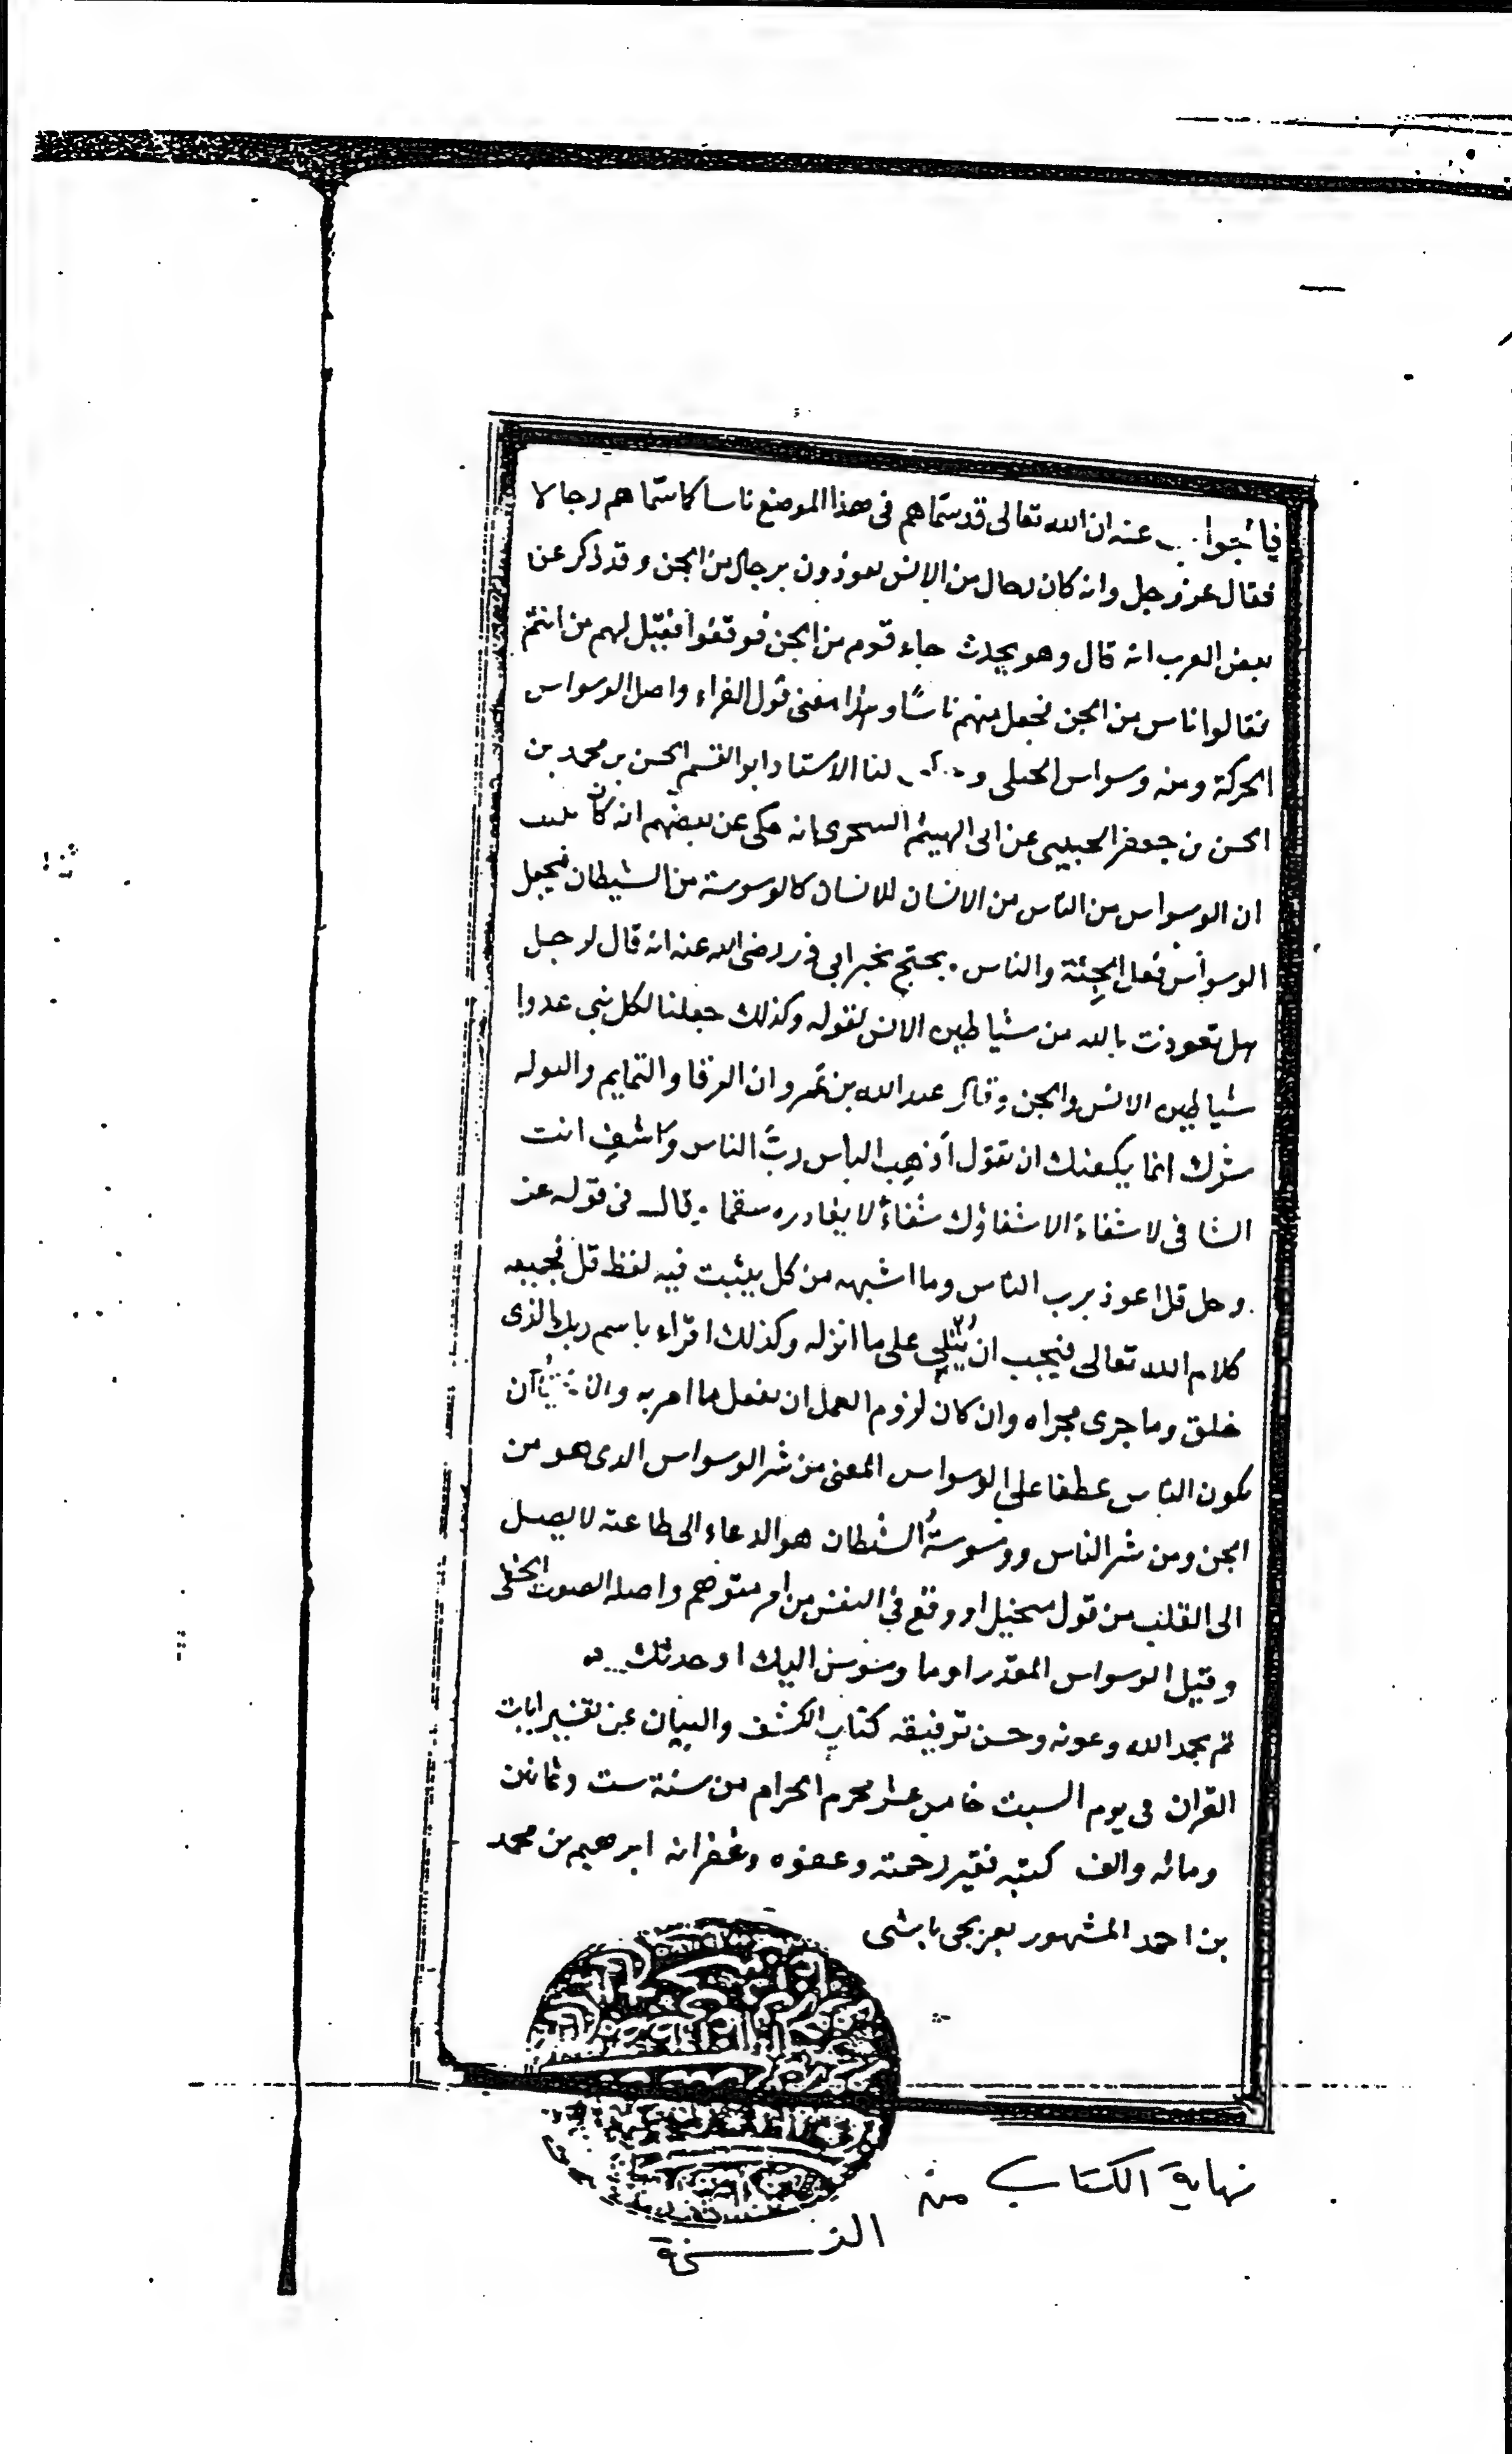 فالجواب عنه ان الله تعالى قد سمّاهم فى هذا الموضع ناسا كما سمّاهم رجالا
فقال عز وجل وانه كان رجال من الإنس يعوذون برجال من الجن وقد ذكر عن
بعض العرب انه قال وهو يحدث جاء قوم من الجن فوقفوا فقيل لهم من انتم
فقالوا ناس من الجن فجعل منهم ناسًا وهذا معنى قول الفراء واصل الوسواس
الحركة ومنه وسواس الحلى و لنا الاستاد ابو القسم الحسن بن محمد بن
الحسن بن جعفر الحبيبى عن ابى الهيثم السحرى انه حكى عن بعضهم انه كان
ان الوسواس من الناس من الانسان للانسان كالوسوسة من الشيطان فجعل
الوسواس فعل الجِنّة والناس . يحتج بخبر ابى ذر رضى الله عنه انه قال لرجل
هل تعوذت بالله من شياطين الانس لقوله وكذلك جعلنا لكل نبي عدوا
شياطين الانس والجن وقال عبد الله بن عمرو ان الرقا والتمايم والتوله
شرك انما يكفنك ان تقول أذهِب الباس ربَّ الناس واشفِ انت
الشافى لا شفاءَ الا شفاؤك شفاءً لا يغادره سقما . قال فى قوله عز
وجل قل اعوذ برب الناس وما اشبهه من كل يثبت فيه لفظ قل فجميعه
كلام الله تعالى فيجب ان يُتلى على ما انزله وكذلك اقراء باسم ربك الذى
خلق وما جرى مجراه وان كان لزوم العمل ان يفعل ما امر به آن
يكون الناس عطفا على الوسواس المعنى من شر الوسواس الدى هو من
الجن ومن شر الناس ووسوسةُ الشيطان هو الدعاء الى طاعته لا يصل
الى القلب من قول متخيل او وقع في النفس من امر متوهم واصله الصوت الخفى
وقيل الوسواس المقدر او ما وسوس اليك او حدثك
تم بحمد الله وعونه وحسن توفيقه كتاب الكشف والبيان عن تفسير ايات
القران فى يوم السبت خامس عشر محرم الحرام من سنة ست وثمانين
ومائه والف كتبه فقير رحمته وعفوه وغفرانه ابرهيم بن محمد
بن احمد المشهور بعربجى باشى
نهاية الكتاب من
النسخة